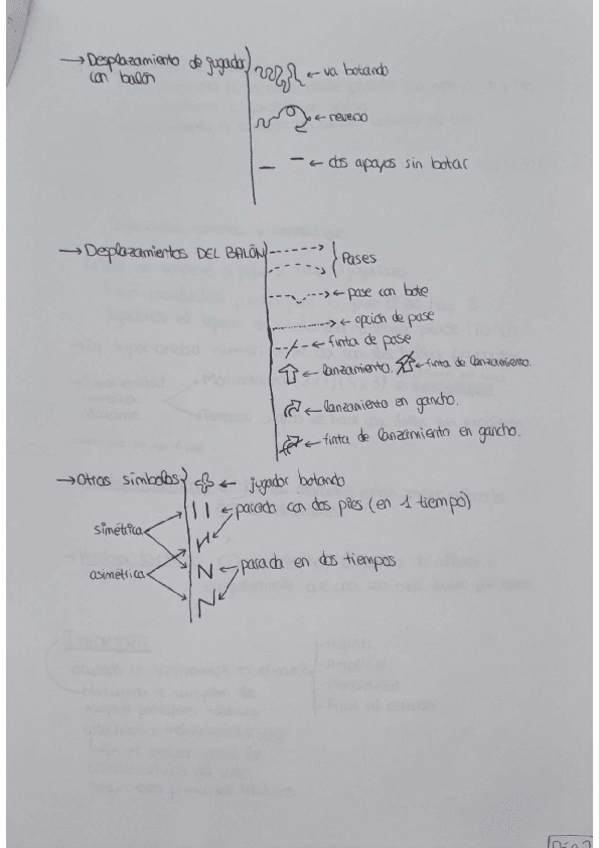 → Desplazamiento de jugador
con balón
← va botando
← reverso
← dos apoyos sin botar
→ Desplazamientos DEL BALÓN
Pases
← pase con bote
← opción de pase
← finta de pase
← lanzamiento. ← finta de lanzamiento.
← lanzamiento en gancho.
← finta de lanzamiento en gancho.
→ Otros símbolos
← jugador botando
← parada con dos pies (en 1 tiempo)
simétrica
← parada en dos tiempos
asimétrica